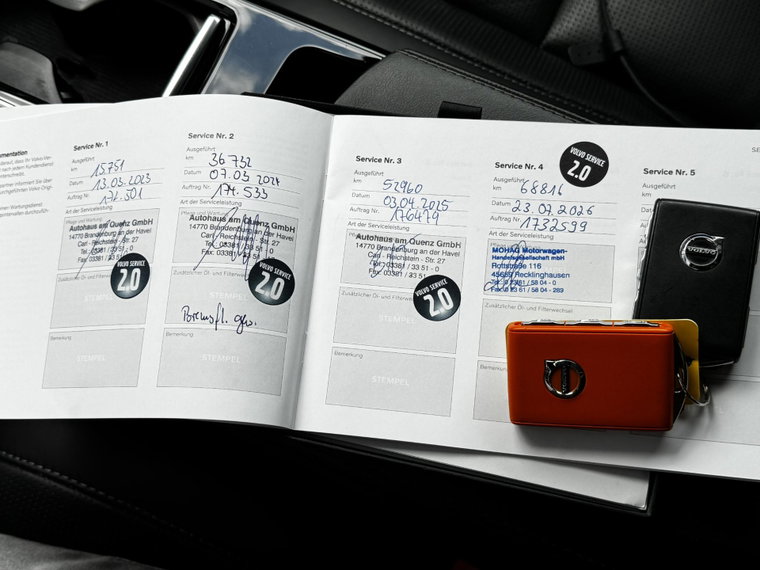 Service Nr. 1
Ausgeführt
km 15751
Datum 13.03.2023
Auftrag Nr. 172.501
Art der Serviceleistung
Pflege und Wartung
Autohaus am Quenz GmbH
14770 Brandenburg an der Havel
Carl - Reichstein - Str. 27
Tel. 03381 / 33 51 - 0
Fax 03381 / 33 51
VOLVO SERVICE
2.0
Zusätzlicher Öl- und
STEMPEL
Bemerkung
STEMPEL
Service Nr. 2
Ausgeführt
km 36732
Datum 07.03.2024
Auftrag Nr. 174.533
Art der Serviceleistung
Pflege und Wartung
Autohaus am Quenz GmbH
14770 Brandenburg an der Havel
Carl - Reichstein - Str. 27
Tel. 03381 / 33 51
Fax 03381 / 33 51
VOLVO SERVICE
2.0
Zusätzlicher Öl- und Filterwechsel
STEMPEL
Bremsfl. gew.
Bemerkung
STEMPEL
Service Nr. 3
Ausgeführt
km 52960
Datum 03.04.2025
Auftrag Nr. 176479
Art der Serviceleistung
Autohaus am Quenz GmbH
14770 Brandenburg an der Havel
Carl - Reichstein - Str. 27
Tel. 03381 / 33 51 - 0
Fax 03381 / 33 51
VOLVO SERVICE
2.0
Zusätzlicher Öl- und Filterwechsel
Bemerkung
STEMPEL
Service Nr. 4
VOLVO SERVICE
2.0
Ausgeführt
km 68816
Datum 23.07.2026
Auftrag Nr. 1732599
Art der Serviceleistung
Pflege und Wartung
MOHAG Motorwagen-
Handelsgesellschaft mbH
Rottstraße 116
45659 Recklinghausen
Tel. 0 2361 / 58 04 - 0
Fax 0 23 61 / 58 04 - 289
Zusätzlicher Öl- und Filterwechsel
Bemerkung
Service Nr. 5
Ausgeführt
km
Datum
VOLVO